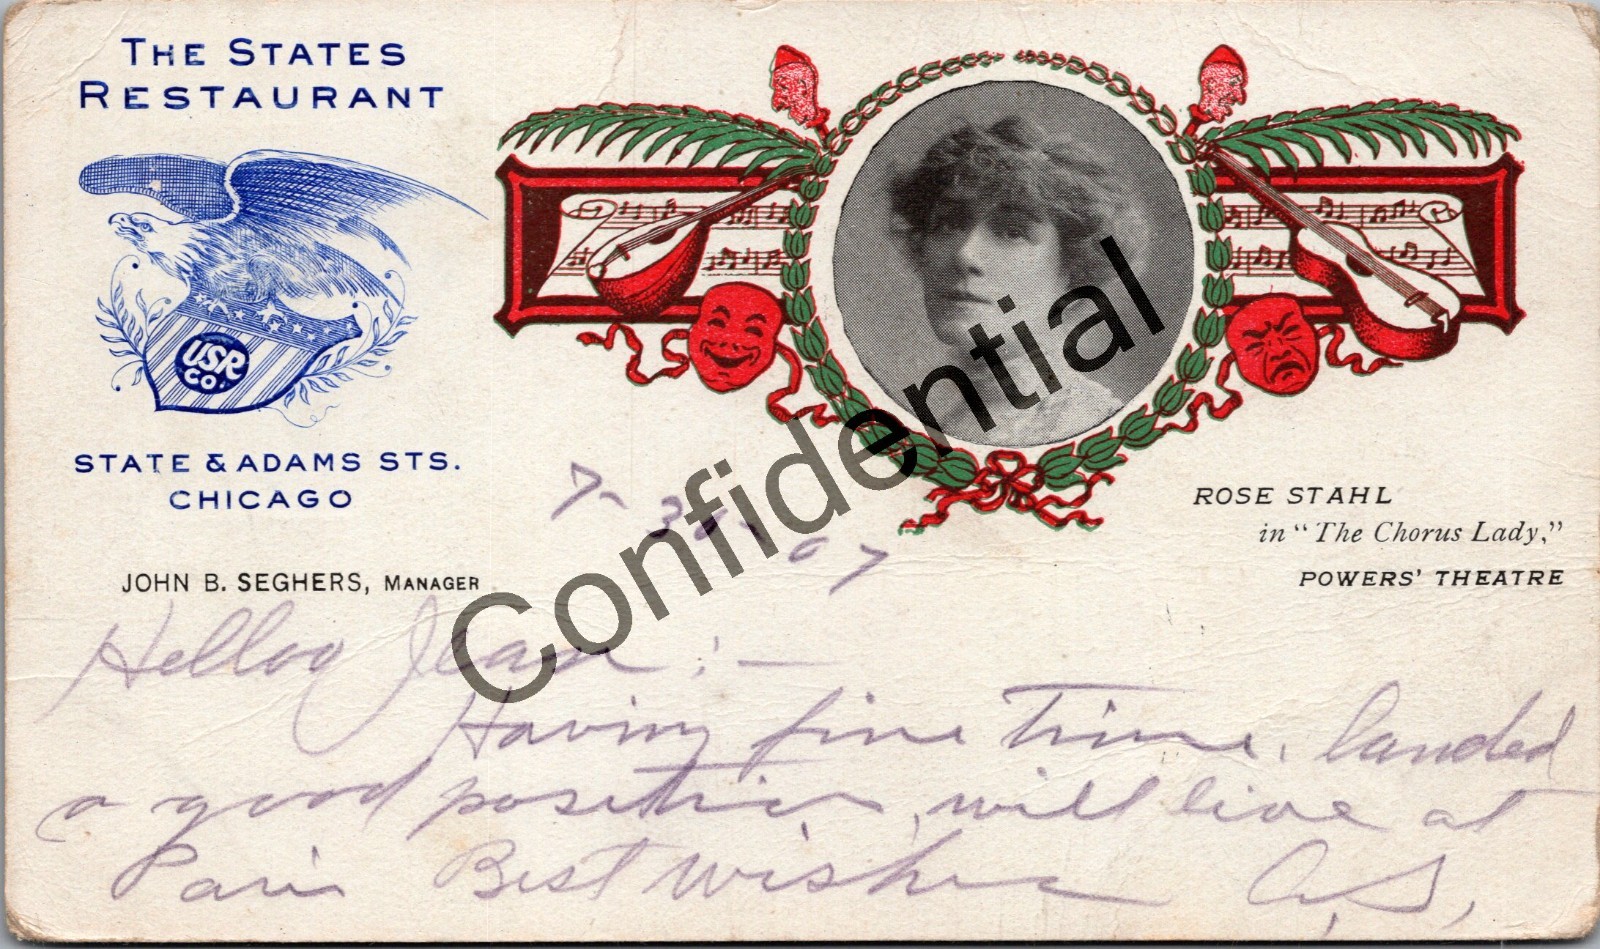 THE STATES
RESTAURANT
USR
CO.
STATE & ADAMS STS.
CHICAGO
JOHN B. SEGHERS, MANAGER
ROSE STAHL
in "The Chorus Lady,"
POWERS' THEATRE
Confidential
7- 30- 07
Helloo Jean : —
Having fine time. landed
a good position, will live at
Paris Best wishes